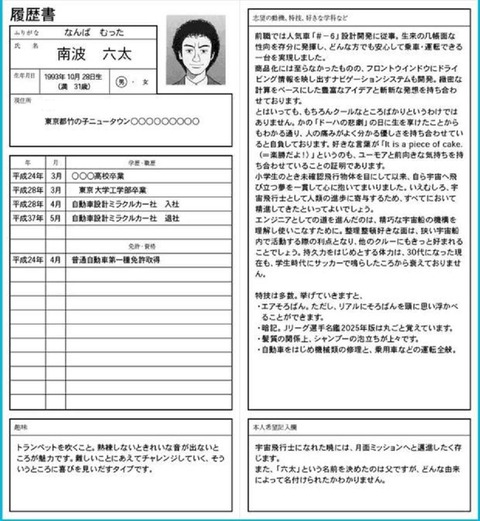 履歴書
ふりがな
なんば むった
氏 名
南波 六太
生年月日
1993年 10月 28日生
(満 31歳)
男 ・ 女
現住所
東京都竹の子ニュータウン○○○○○○○○○
年 月 学歴・職歴
平成24年 3月 ○○○高校卒業
平成28年 3月 東京大学工学部卒業
平成28年 4月 自動車設計ミラクルカー社 入社
平成37年 5月 自動車設計ミラクルカー社 退社
免許・資格
平成24年 4月 普通自動車第一種免許取得
趣味
トランペットを吹くこと。熟練しないときれいな音が出ないと
ころが魅力です。難しいことにあえてチャレンジしていく、そう
いうところに喜びを見いだすタイプです。
志望の動機、特技、好きな学科など
前職では人気車「#-6」設計開発に従事。生来の几帳面な
性向を存分に発揮し、どんな方でも安心して乗車・運転できる
一台を実現しました。
商品化には至らなかったものの、フロントウインドウにドライ
ビング情報を映し出すナビゲーションシステムも開発。緻密な
計算をベースにした豊富なアイデアと斬新な発想を持ち合わ
せております。
とはいっても、もちろんクールなところばかりというわけでは
ありません。かの「ドーハの悲劇」の日に生を享けたことから
もわかる通り、人の痛みがよく分かる優しさを持ち合わせてい
ると自負しております。好きな言葉が「It is a piece of cake.
(=楽勝だよ!)」というのも、ユーモアと前向きな気持ちを持
ち合わせていることの証明であります。
小学生のとき未確認飛行物体を目にして以来、自ら宇宙へ飛
び立つ夢を一貫して心に抱いてまいりました。いえむしろ、宇
宙飛行士として人類の進歩に寄与するため、すべてにおいて
精進してきたといってよいでしょう。
エンジニアとしての道を進んだのは、精巧な宇宙船の機構を
理解し使いこなすために。整理整頓好きな面は、狭い宇宙船
内で活動する際の利点となり、他のクルーにもきっと好まれる
ことでしょう。持久力をはじめとする体力は、30代になった現
在も、学生時代にサッカーで鳴らしたころから衰えておりませ
ん。
特技は多数。挙げていきますと、
・エアそろばん。ただし、リアルにそろばんを頭に思い浮かべ
ることができます。
・暗記。Jリーグ選手名鑑2025年版は丸ごと覚えています。
・髪質の関係上、シャンプーの泡立ちが上々です。
・自動車をはじめ機械類の修理と、乗用車などの運転全般。
本人希望記入欄
宇宙飛行士になれた暁には、月面ミッションへと邁進したく存
じます。
また、「六太」という名前を決めたのは父ですが、どんな由来
によって名付けられたかわかりません。